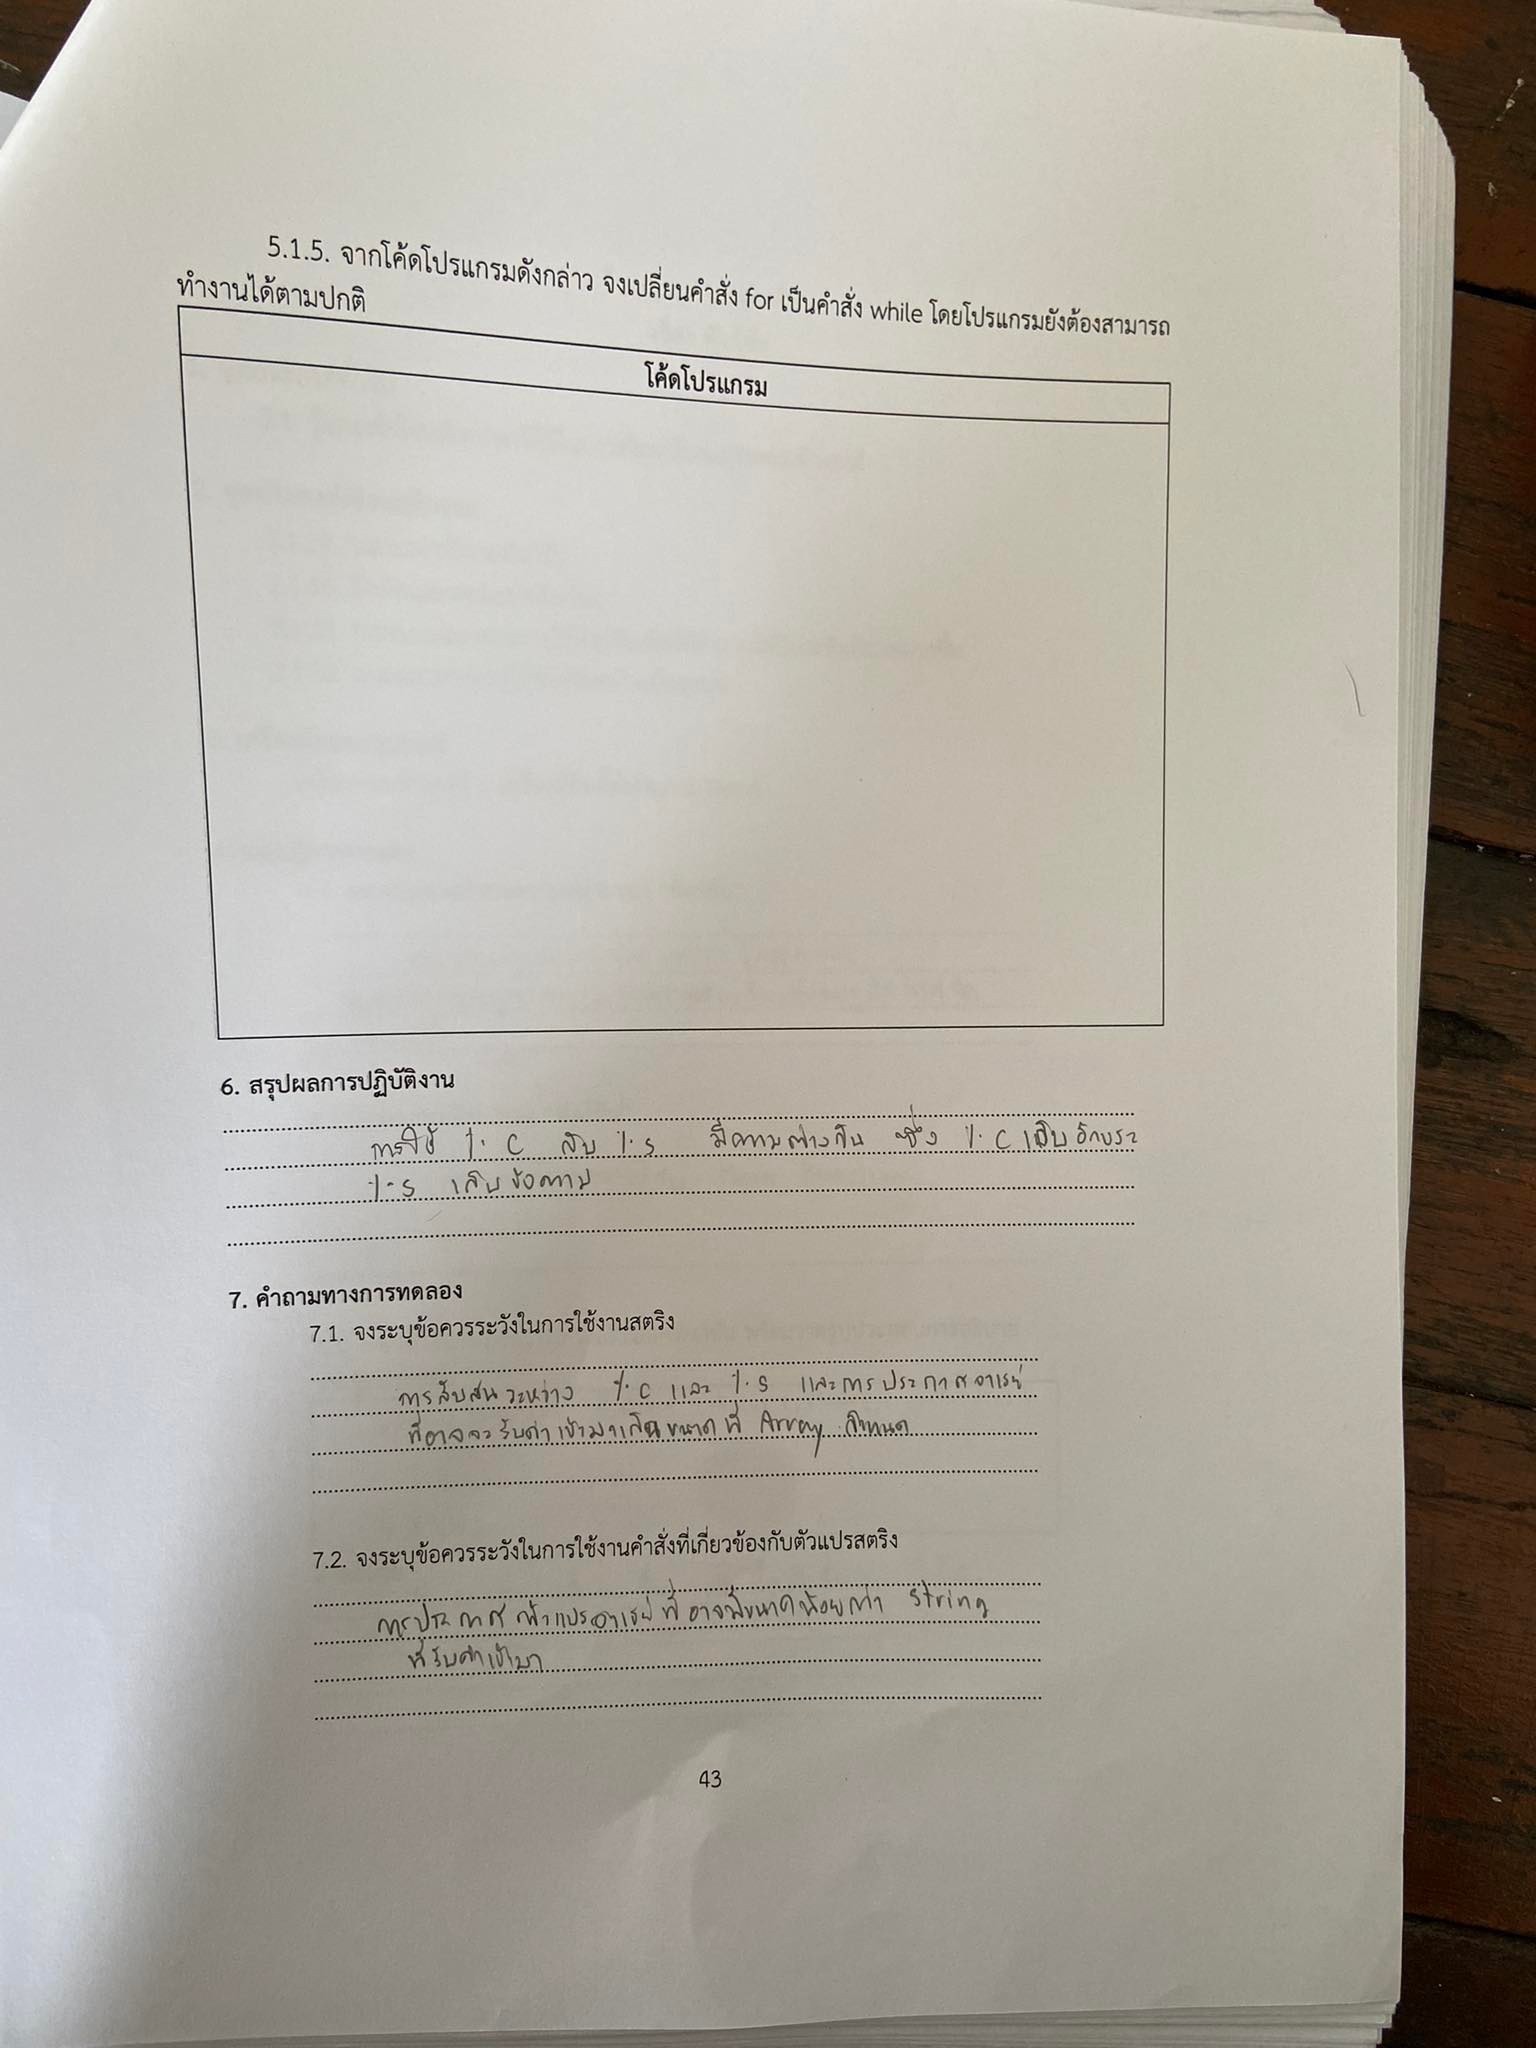 5.1.5. จากโค้ดโปรแกรมดังกล่าว จงเปลี่ยนคำสั่ง for เป็นคำสั่ง while โดยโปรแกรมยังต้องสามารถ
ทำงานได้ตามปกติ
โค้ดโปรแกรม
6. สรุปผลการปฏิบัติงาน
การใช้ %C กับ %s มีความต่างกัน ซึ่ง %C เก็บอักขระ
%s เก็บข้อความ
7. คำถามทางการทดลอง
7.1. จงระบุข้อควรระวังในการใช้งานสตริง
การสับสนระหว่าง %c และ %s และการประกาศอาเรย์
ที่อาจจะรับค่าเข้ามาเกินขนาดที่ Array กำหนด
7.2. จงระบุข้อควรระวังในการใช้งานคำสั่งที่เกี่ยวข้องกับตัวแปรสตริง
การประกาศตัวแปรอาเรย์ที่อาจมีขนาดน้อยกว่า String
ที่รับค่าเข้ามา
43